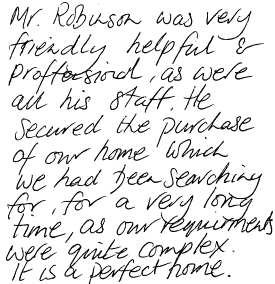 Mr. Robinson was very
friendly helpful &
proffessional, as were
all his staff. He
secured the purchase
of our home which
we had been searching
for, for a very long
time, as our requirments
were quite complex.
It is a perfect home.